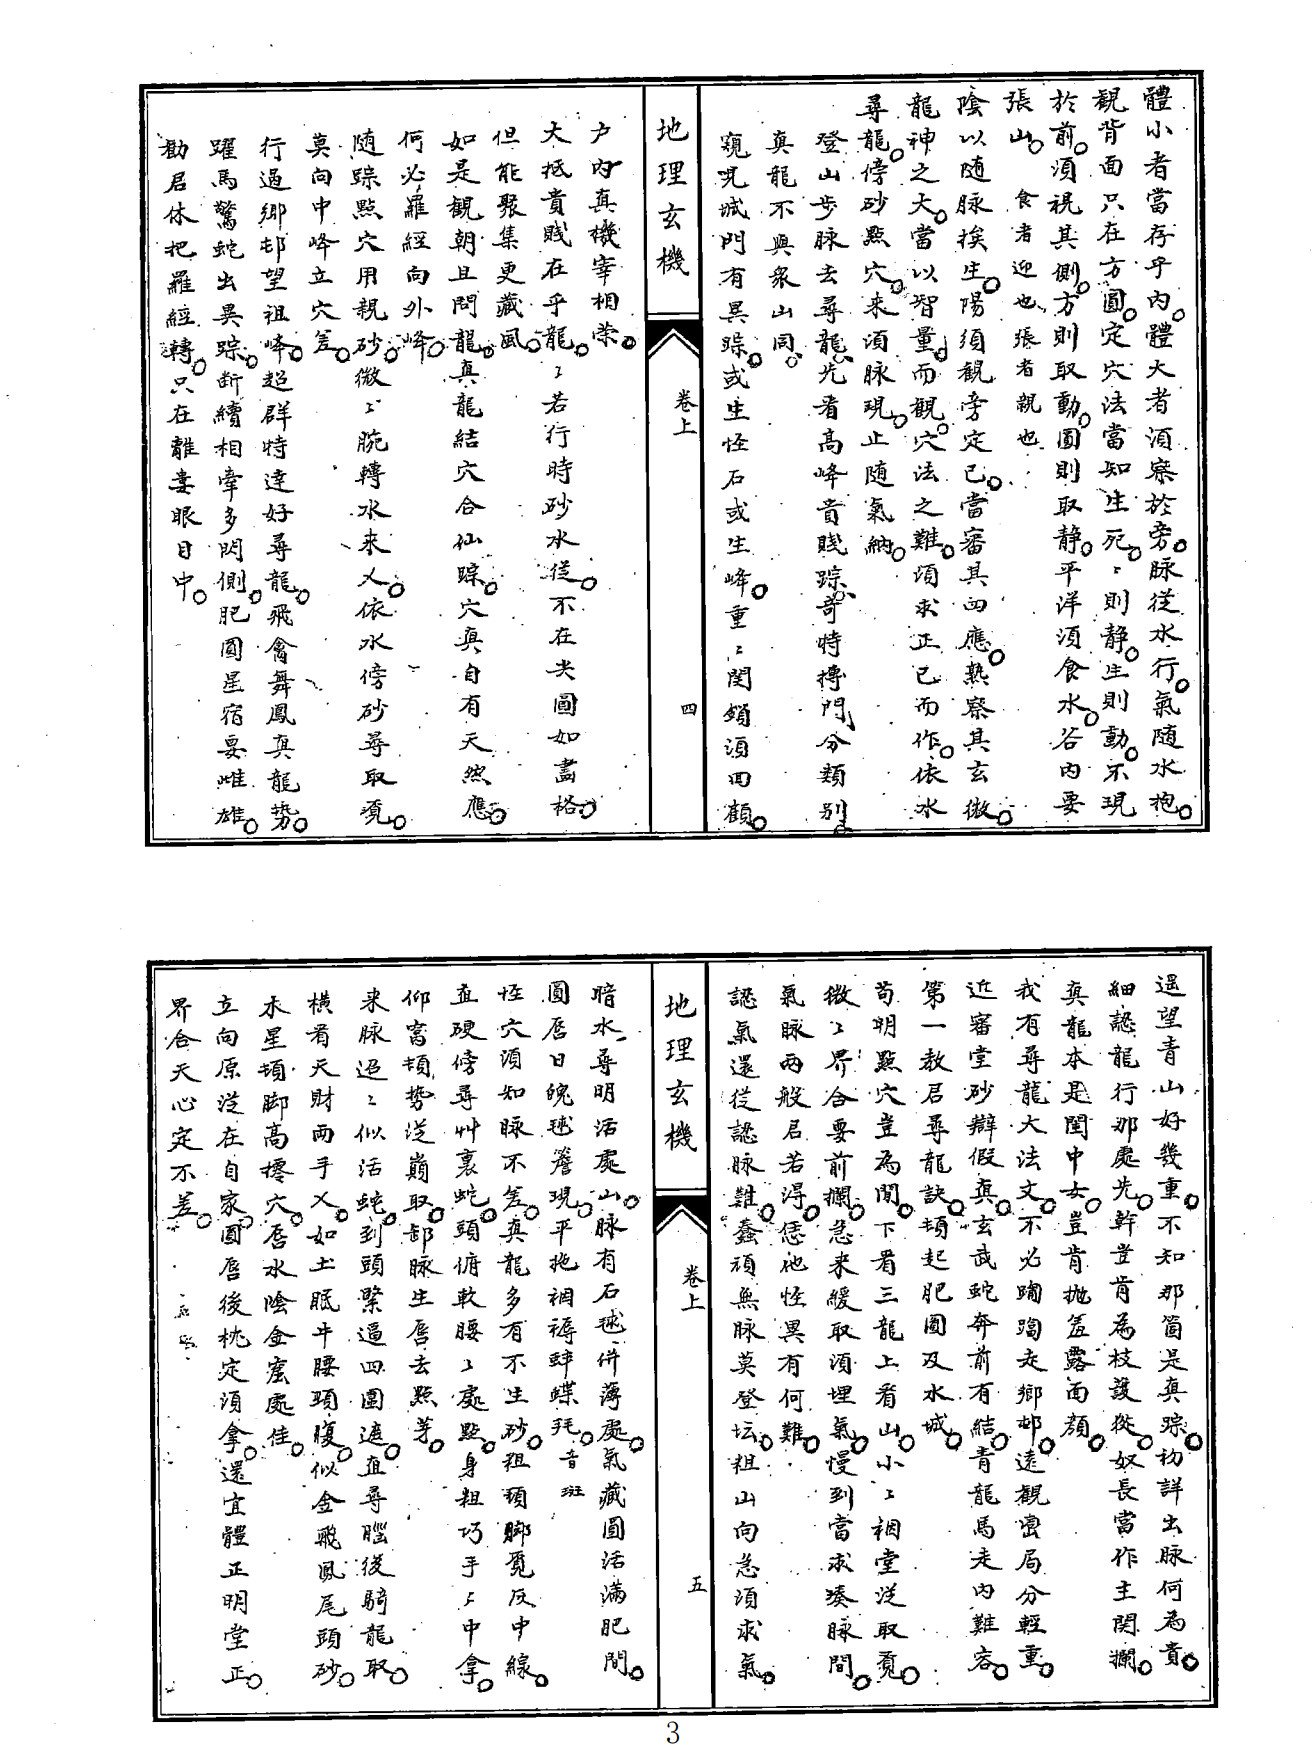 體小者當存乎內○體大者須察於旁○脉從水行○氣隨水抱○
觀背面只在方圓○定穴法當知生死○〻則靜○生則動○不現
於前○須視其側○方則取動○圓則取靜○平洋須食水○谷內要
張山○食者迎也張者親也
陰以隨脉挨生○陽須觀旁定已○當審其四應○熟察其玄微○
龍神之大○當以智量○而觀○穴法之難○須求正已而作○依水
尋龍○傍砂點穴○來須脉現○止隨氣納○
登山步脉去尋龍○先看高峰貴賤踪○奇特摶門分類別○
真龍不與衆山同○
窺見城門有異踪○或生怪石或生峰○重〻関鎖須回顧○
地理玄機
卷上
四
户內真機宰相榮○
大抵貴賤在乎龍○〻若行時砂水從○不在尖圓如畫格○
但能聚集更藏風○
如是觀朝且問龍○真龍結穴合仙踪○穴真自有天然應○
何必羅經向外峰○
隨踪點穴用親砂○微〻腕轉水來乂○依水傍砂尋取覔○
莫向中峰立穴差○
行過鄉邨望祖峰○超群特達好尋龍○飛禽舞鳳真龍勢○
躍馬驚蛇出異踪○斷續相牽多閃側○肥圓星宿要雌雄○
勸君休把羅經轉○只在離婁眼目中○
遥望青山好幾重○不知那箇是真踪○初詳出脉何為貴○
細認龍行那處先○幹豈肯為枝護從○奴長當作主関攔○
真龍本是閨中女○豈肯抛羞露面顔○
我有尋龍大法文○不必蹋蹋走鄉邨○遠觀巒局分輕重○
近審堂砂辯假真○玄武蛇奔前有結○青龍馬走內難容○
第一教君尋龍訣○頓起肥圓及水城○
苟明點穴豈為閒○下看三龍上看山○小〻裀堂從取覔○
微〻界合要前攔○急來緩取須埋氣○慢到當求湊脉間○
氣脉兩般君若淂○恁他怪異有何難○
認氣還從認脉難○蠢頑無脉莫登坛○粗山向急須求氣○
地理玄機
卷上
五
暗水尋明活處山○脉有石毬併薄處○氣藏圓活滿肥間○
圓唇日魄毬簷現○平拖裀褥蚌蝶玭○音班
怪穴須知脉不差○真龍多有不生砂○粗頑腳覔反中線○
直硬傍尋艸裏蛇○頭俯軟腰〻處點○身粗巧手〻中拿○
仰窩頓勢從巔取○部脉生唇去點芽○
来脉迢〻似活蛇○到頭緊逼四圍遮○直尋腦後騎龍取○
橫看天財兩手乂○如土眠牛腰頭腹○似金飛鳳尾頭砂○
木星頓脚高櫺穴○唇水陰金窩處佳○
立向原從在自家○圓唇後枕定須拿○還宜體正明堂正○
界合天心定不差○
3